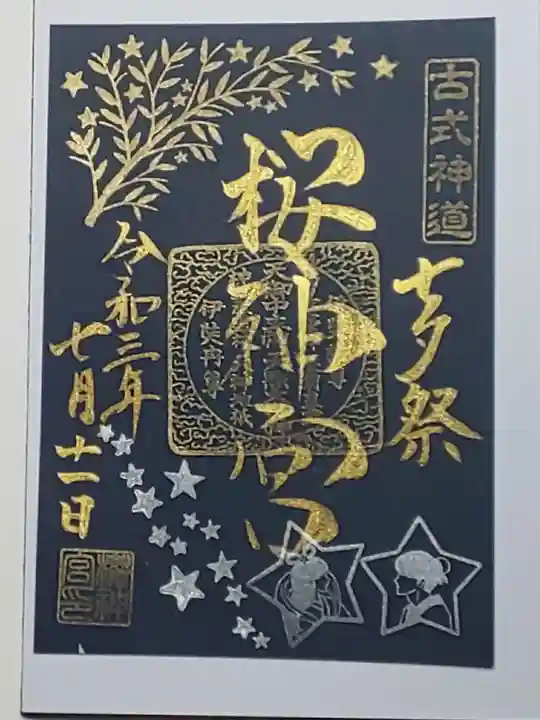 古式神道
七夕祭
桜神宮
令和三年
七月十一日
伊弉冉尊